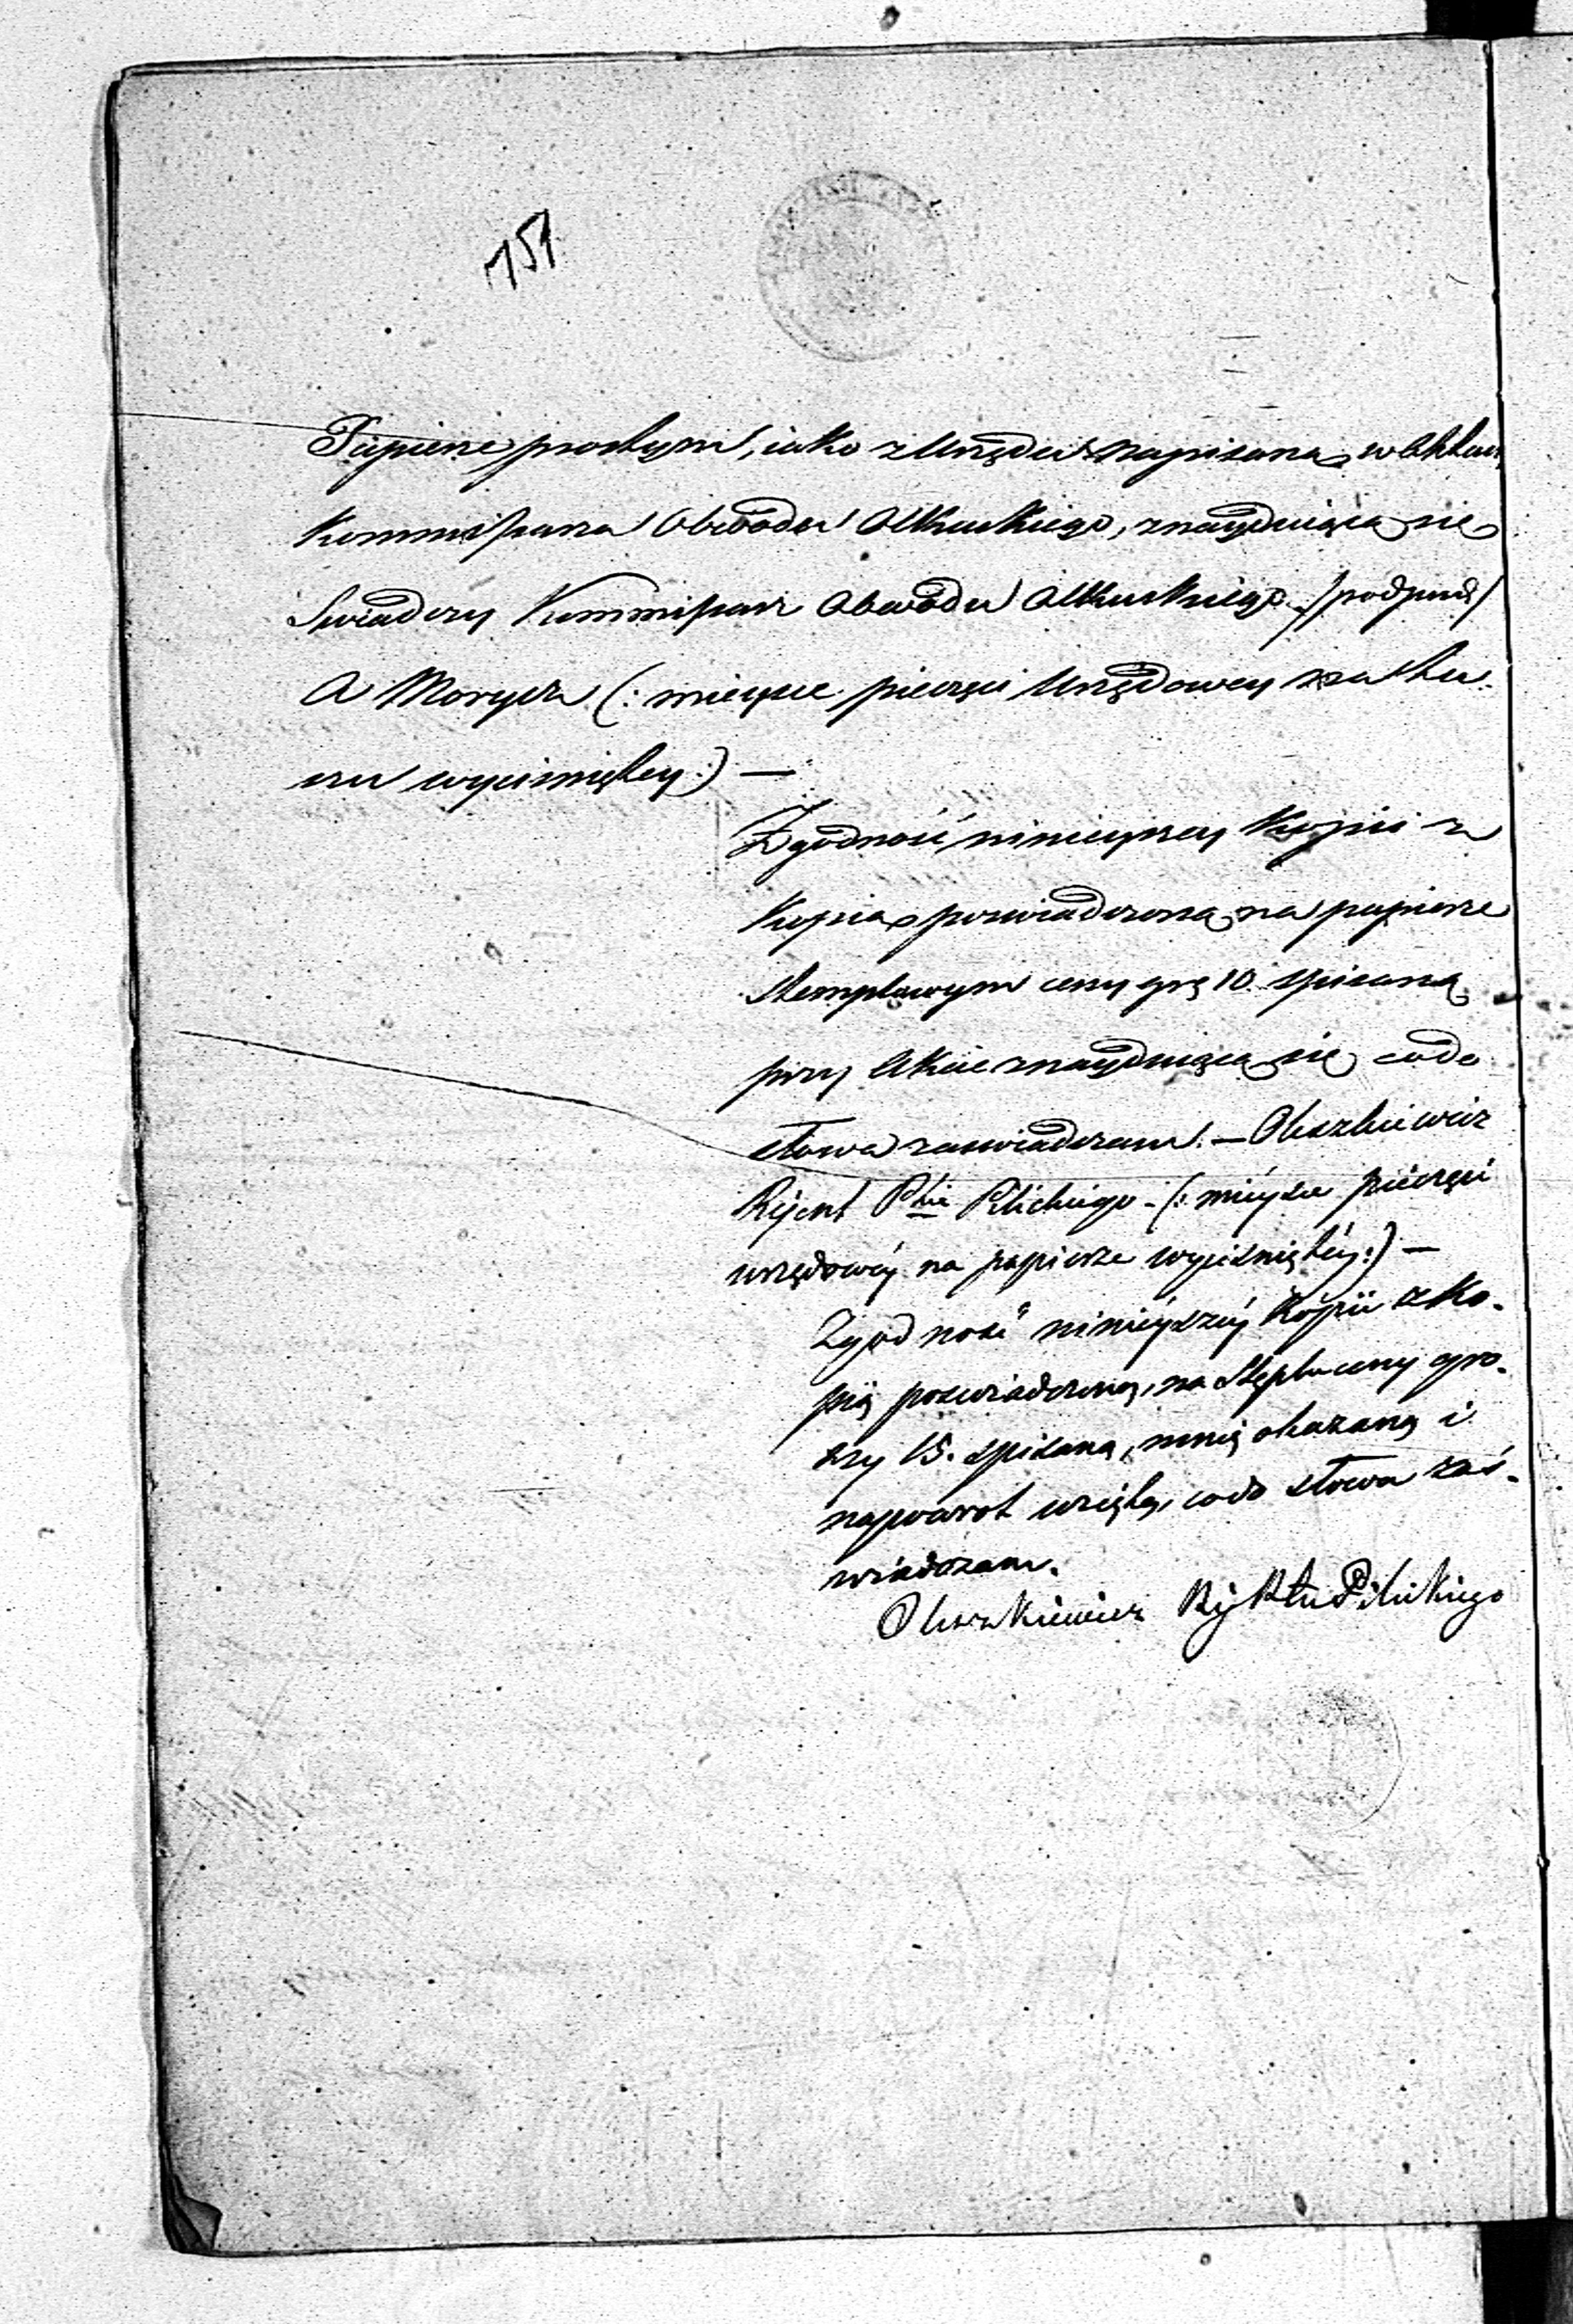 151
Papierze prostym, iako z Urzędu napisana, w Aktach
Kommissarza Obwodu Olkuskiego, znayduiąca się
Swiadczy Kommissarz Obwodu Olkuskiego /podpisał/
A Moryca (: mieysce pieczęci Urzędowey na tu-
szu wyciśnięty :) —
Zgodność ninieyszey Kopii z
Kopią poswiadczoną na papierze
stemplowym ceny grę 10 spisaną
przy Akcie znayduiącą się co do
słowa zaswiadczam. — Oluszkiewicz
Rejent Ptu Pilickiego. (: miéysce pieczęci
urzędowéy na papierze wyciśniętéy :) —
Zgodność niniéyszéy Kopii z Ko-
pią poswiadczoną, na Stęplu ceny gro-
szy 15. spisaną, mnię okazaną i
napowrot wziętą, co do słowa zaś-
wiadczam.
Oluszkiewicz Rej Ptu Pilickiego